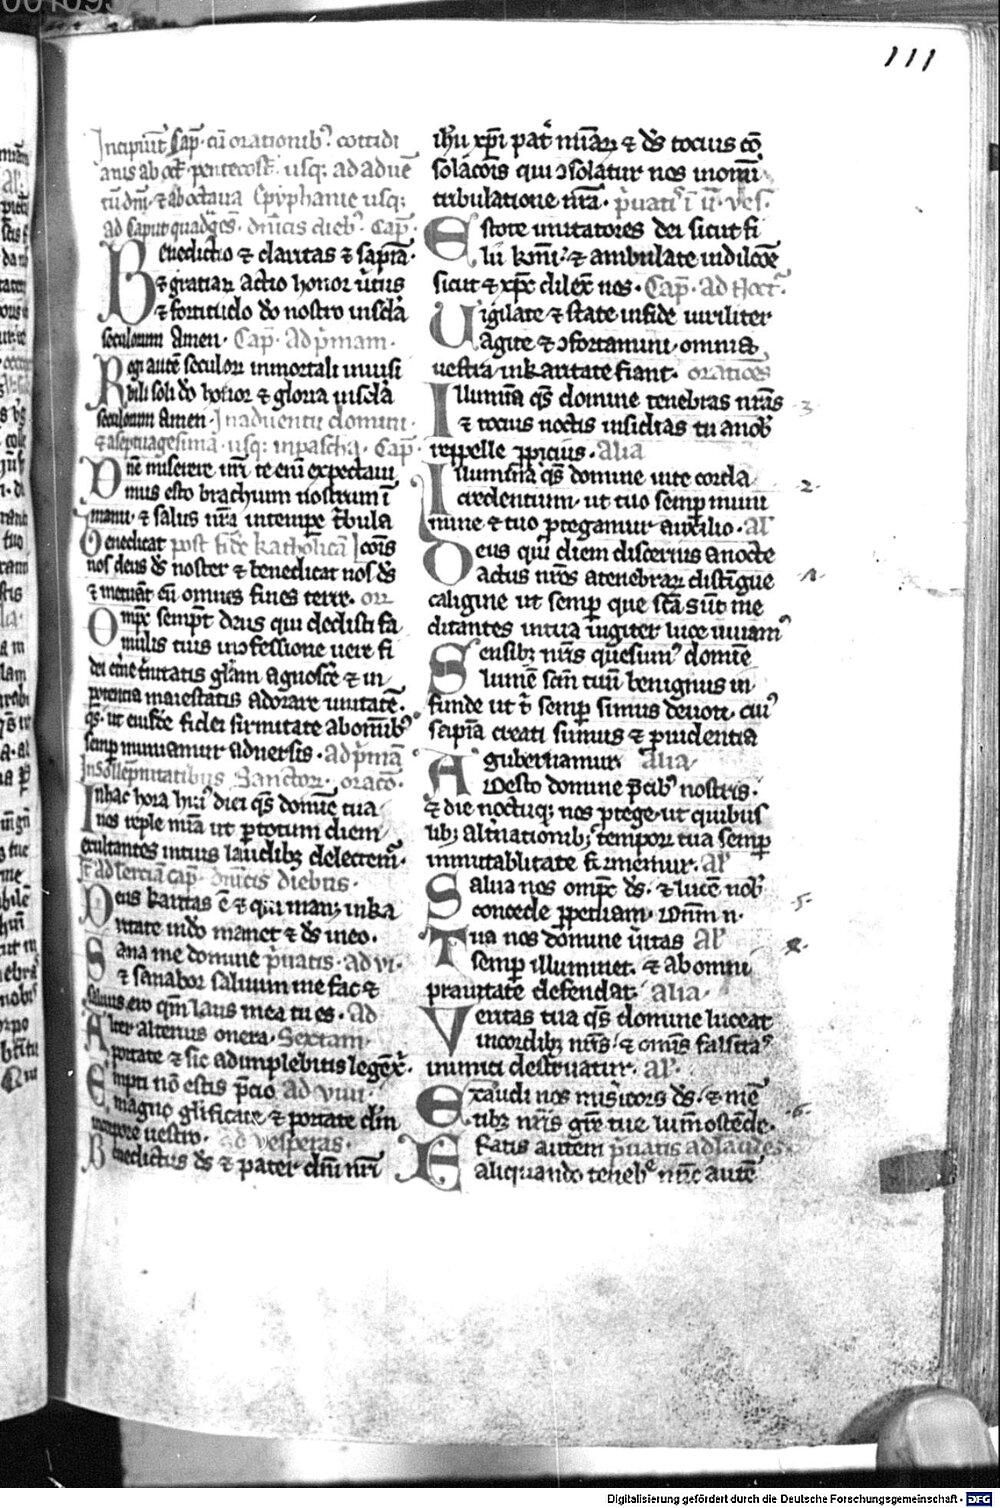 111
Incipiūt Cap̄. cū orationibꝰ cottidi
anis ab oct̄. pentecost̄. usq; ad aduē
tū dn̄i. ⁊ ab octaua Epyphanie usq;
ad Caput quadḡes. dn̄icis diebꝰ. Cap̄.
Benedictio ⁊ claritas ⁊ sapīa.
⁊ gratiaꝝ actio honor u̇tus
⁊ fortitudo do nostro in scl̄a
seculorum Amen. Cap̄. Ad p̓mam.
Regi autē seculoꝝ inmortali inuisi
bili soli do honor ⁊ gloria in scl̄a
seculorum Amen. In aduentu domini.
⁊ a septuagesima. usq; in pascha. Cap̄.
Dn̄e miserere nr̄i te enī expectaui
mus esto brachium nostrum ī
manu. ⁊ salus nr̄a in tempe t̓bula
Benedicat post fidē katholicā cōis
nos deus ds̄ noster ⁊ benedicat nos ds̄
⁊ metuāt eū omnes fines terre. or̄
Omps̄ sempit̄ deus qui dedisti fa
mulis tuis in ꝯfessione uere fi
dei et̄ne t̓nitatis gl̄am agnosce ⁊ in
potentia maiestatis adorare unitatē.
qs̄. ut eiusdē fidei firmitate ab om̄ibꝰ
semp̄ muniamur aduersis. ad p̓mā
In sollēpnitatibus Sanctoꝝ. oracō.
In hac hora huiꝰ diei qs̄ domīe tua
nos reple mīa ut p̱ totum diem
exultantes in tuis laudibꝫ delectemꝰ.
It̄ ad terciā cap̄. dn̄icis diebus.
Deus karitas ē ⁊ qui manꝫ in ka
ritate in do manet ⁊ ds̄ in eo.
Sana me domine p̓uatis. ad vi.
⁊ sanabor saluum me fac ⁊
saluus ero qm̄ laus mea tu es. Ad
Alter alterius onera. Sextam.
portate ⁊ sic adimplebitis legē x̄.
Empti nō estis p̄cio ad viiii.
magno gl̄ificate ⁊ portate dm̄
in corpore uestro. ad vesperas.
Benedictus ds̄ ⁊ pater dn̄i nr̄i
ih̄u xp̄i pat̄ mīaꝝ ⁊ ds̄ tocius cō
solacōis qui ꝯsolatur nos in om̄i
tribulatione nr̄a. p̓uatis ī ii. ves.
Estote imitatores dei sicut fi
lii kmī. ⁊ ambulate in dilcōe
sicut ⁊ xp̄c dilex̄ nos. Cap̄. ad noct̄.
Uigilate ⁊ state in fide uiriliter
agite ⁊ ꝯfortamini. omnia
uestra in karitate fiant. orationes
Illumina qs̄ domine tenebras nr̄as 3
⁊ tocius noctis insidias tu a nobꝰ
reppelle ꝓpicius. Alia
Illumina qs̄ domine uite corda 2.
credentium. ut tuo semp̄ munī
mine ⁊ tuo ꝓtegamur auxilio. al̄
Deus qui diem discernis a nocte
actus nr̄os a tenebraꝝ distīgue 1.
caligine ut semp̄ que scā sūt me
ditantes in tua iugiter luce uiuamꝰ
Sensibꝫ nr̄is quesumꝰ domīe
lumē scm̄ tuū benignus in
funde ut t̄ semp̄ simus deuoti. cuiꝰ
sapīa creati sumus ⁊ prudentia
gubernamur Alia
Adesto domine p̄cibꝰ nostris.
⁊ die noctuq; nos ꝓtege. ut quibus
libꝫ alt̓nationibꝫ tempoꝝ tua semp̄
inmutabilitate firmemur. al̄
Salua nos omps̄ ds̄. ⁊ lucē nobꝰ
concede ꝑpetuam. 5.
Tua nos domine u̇itas Al̄
semp̄ illuminet. ⁊ ab omni
prauitate defendat. Alia.
Veritas tua qs̄ domine luceat
in cordibꝫ nr̄is. ⁊ omīs falsitas
inimici destruatur. al̄.
Exaudi nos miꝰicors ds̄. ⁊ mē
tibꝫ nr̄is gr̄e tue lum̄ ostēde. 6.
Eratis autem p̓uatis ad laudes
aliquando teneb̄e nūc autē
Digitalisierung gefördert durch die Deutsche Forschungsgemeinschaft - DFG